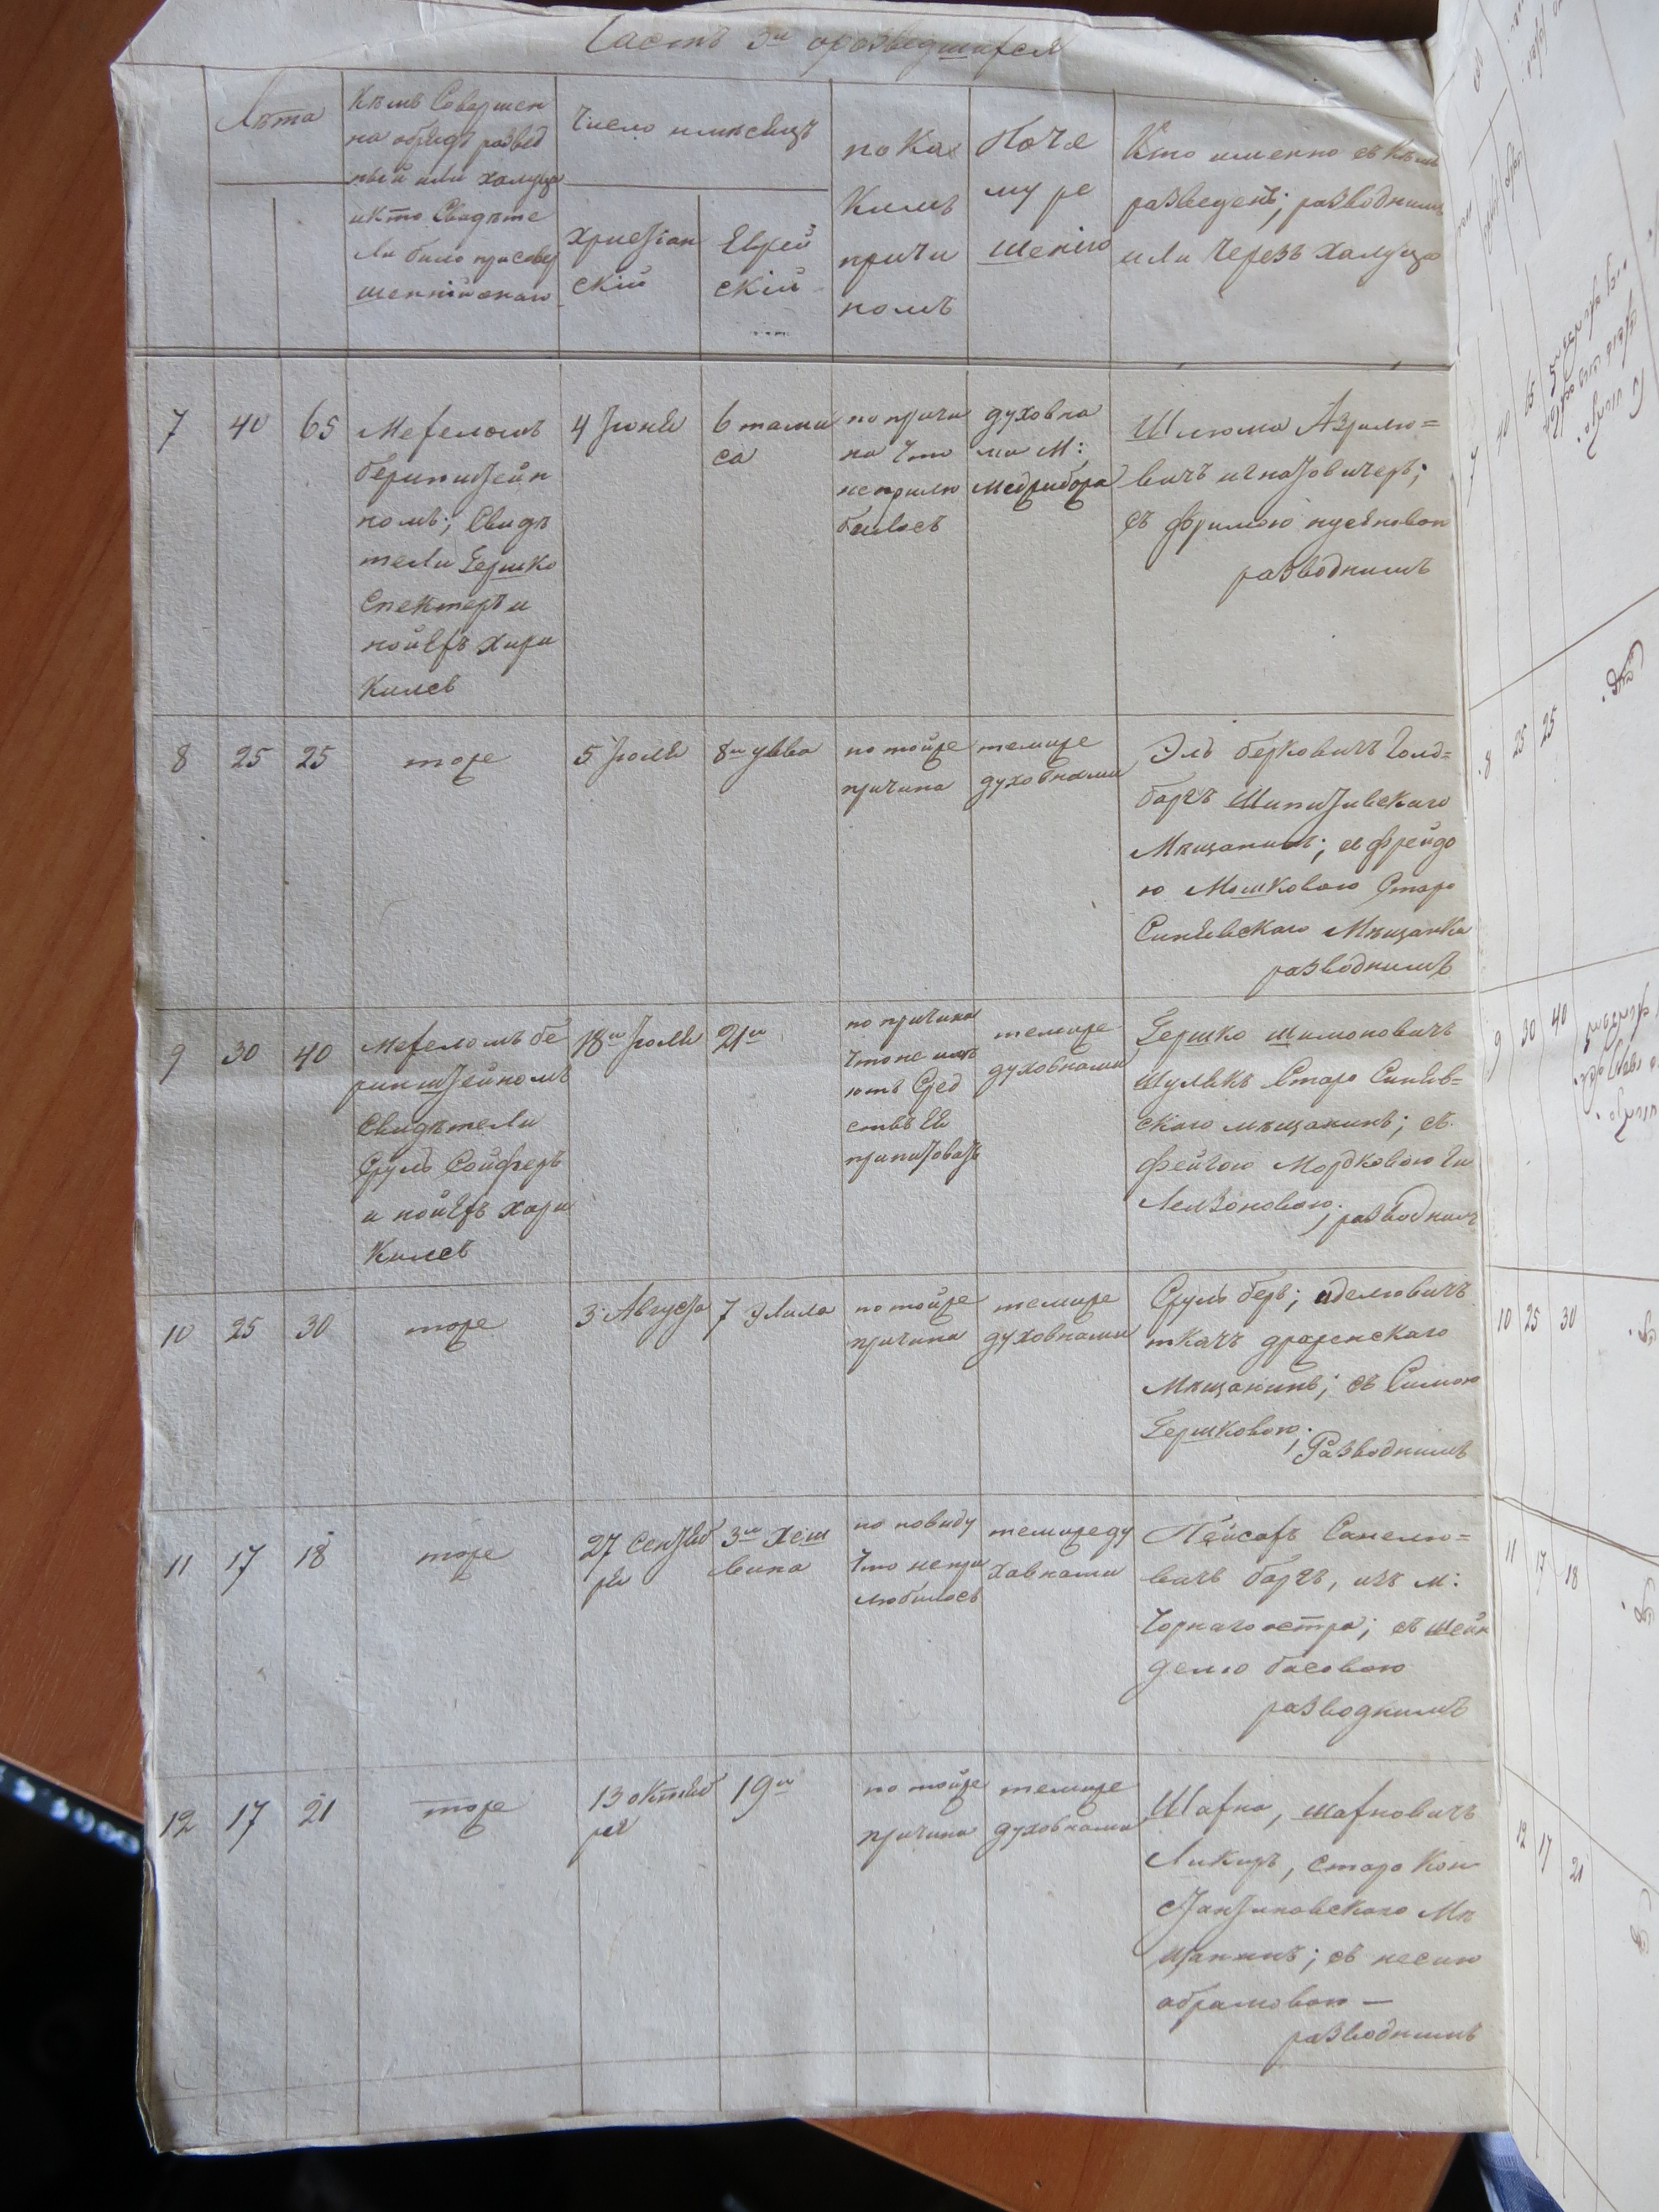 Часть 3я оразведшихся
Лѣта
Кѣмъ Совершен
на обрядъ развод
ный или халуца
икто Свидѣте
ли было присовер
шеннiй онаго
Число имѣсяцъ
Христiан
скiй
Еврей
скiй
по Ка
кимъ
причи
номъ
Поче
му ре
шенiю
Кто именно съ Кѣмъ
разведенъ; разводнимъ
или Черезъ халуцо
7
40
65
Мехеломъ
беринштейн
номъ; Свидѣ
тели Гершко
Спектеръ и
нойехъ хари
килсъ
4 Iюня
6 тами
са
по причи
на Что
неприлю
билось
духовна
ми М:
Медзибора
Шлюма Азрилю=
вичъ
съ Фримою
разводнимъ
8
25
25
тоже
5 Iюля
8я увва
по тойже
причина
темиже
духовнами
Эль берковичъ Голд=
баргъ
Мѣщанинъ; съ Фрейдо
ю Мошковою Старо
Синявскаго Мѣщанка
разводнимъ
9
30
40
Мехеломъ бе
ринштейномъ
Свидѣтели
Сруль Сойферъ
и нойехъ хари
килсъ
18я Iюля
21я
по причина
Что не имѣ
ютъ Сред
ствъ Ея
темиже
духовнами
Гершко Шимоновичъ
Шулькъ Старо Синяв=
скаго мѣщанинъ; съ
Фейгою Мордковою Ги
; разводнимъ
10
25
30
тоже
3 Августа
7 Элила
по тойже
причина
темиже
духовнами
Сруль беръ;
ткачъ
Мѣщанинъ; съ Симою
Гершковою
; Разводнимъ
11
17
18
тоже
27 Сентяб
ря
3я Хеш
вина
по повиду
Что непри
любилось
темижеду
ховнами
Пейсахъ Санелю=
вичъ баргъ, изъ м:
Чорнаго остра; съ Шейн
делю басовою
разводнимъ
12
17
21
тоже
13 октяб
ря
19я
по тойже
причина
темиже
духовнами
Шахна, Шахновичъ
Ликеръ, Старо Кон
стантиновскаго Мѣ
щанинъ; съ несию
абрамовою —
разводнимъ
7
40
65
8
25
25
9
30
40
10
25
30
11
17
18
12
17
21